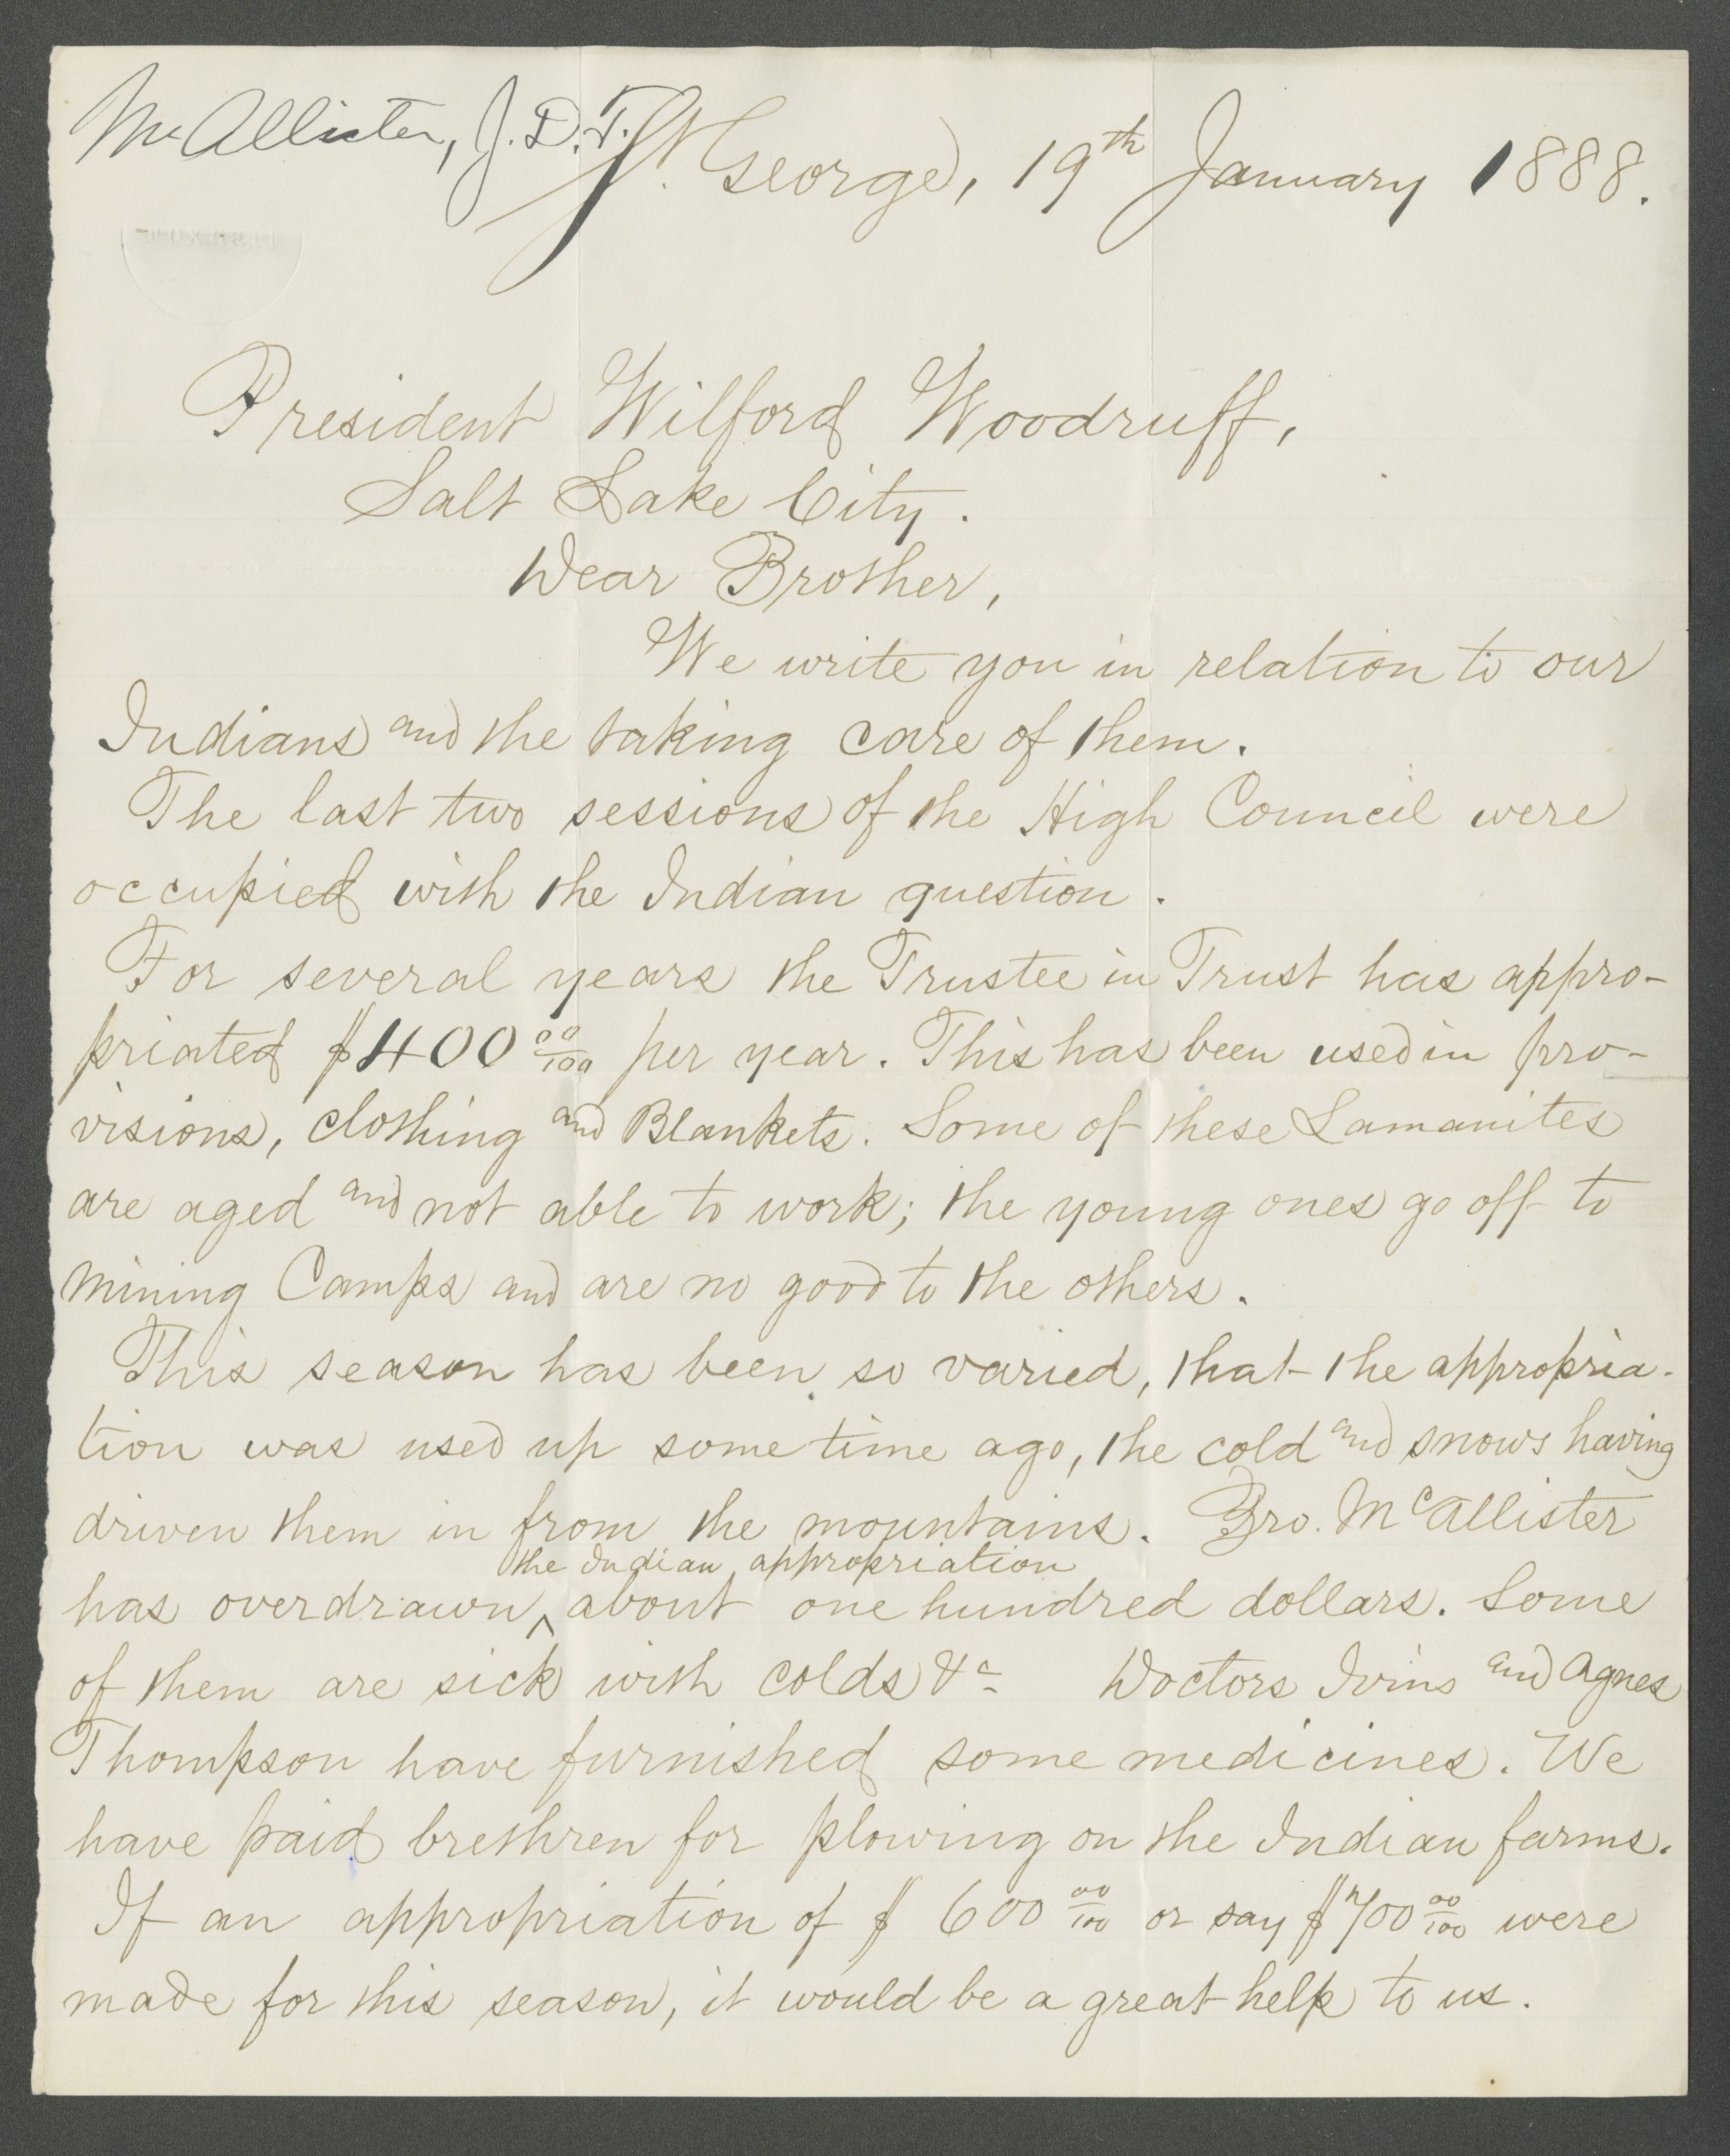 McAllister, J. D. T.
St. George, 19th January 1888.
President Wilford Woodruff,
Salt Lake City.
Dear Brother,
We write you in relation to our
Indians and the taking care of them.
The last two sessions of the High Council were
occupied with the Indian question.
For several years the Trustee in Trust has appro-
priated $400 00/100 per year. This has been used in pro-
visions, clothing and Blankets. Some of these Lamanites
are aged and not able to work; the young ones go off to
mining Camps and are no good to the others.
This season has been so varied, that the appropria-
tion was used up some time ago, the cold and snows having
driven them in from the mountains. Bro. McAllister
the Indian appropriation
has overdrawn ^ about one hundred dollars. Some
of them are sick with colds &c Doctors Ivins and Agnes
Thompson have furnished some medicines. We
have paid brethren for plowing on the Indian farms.
If an appropriation of $ 600 00/100 or say $700 00/100 were
made for this season, it would be a great help to us.